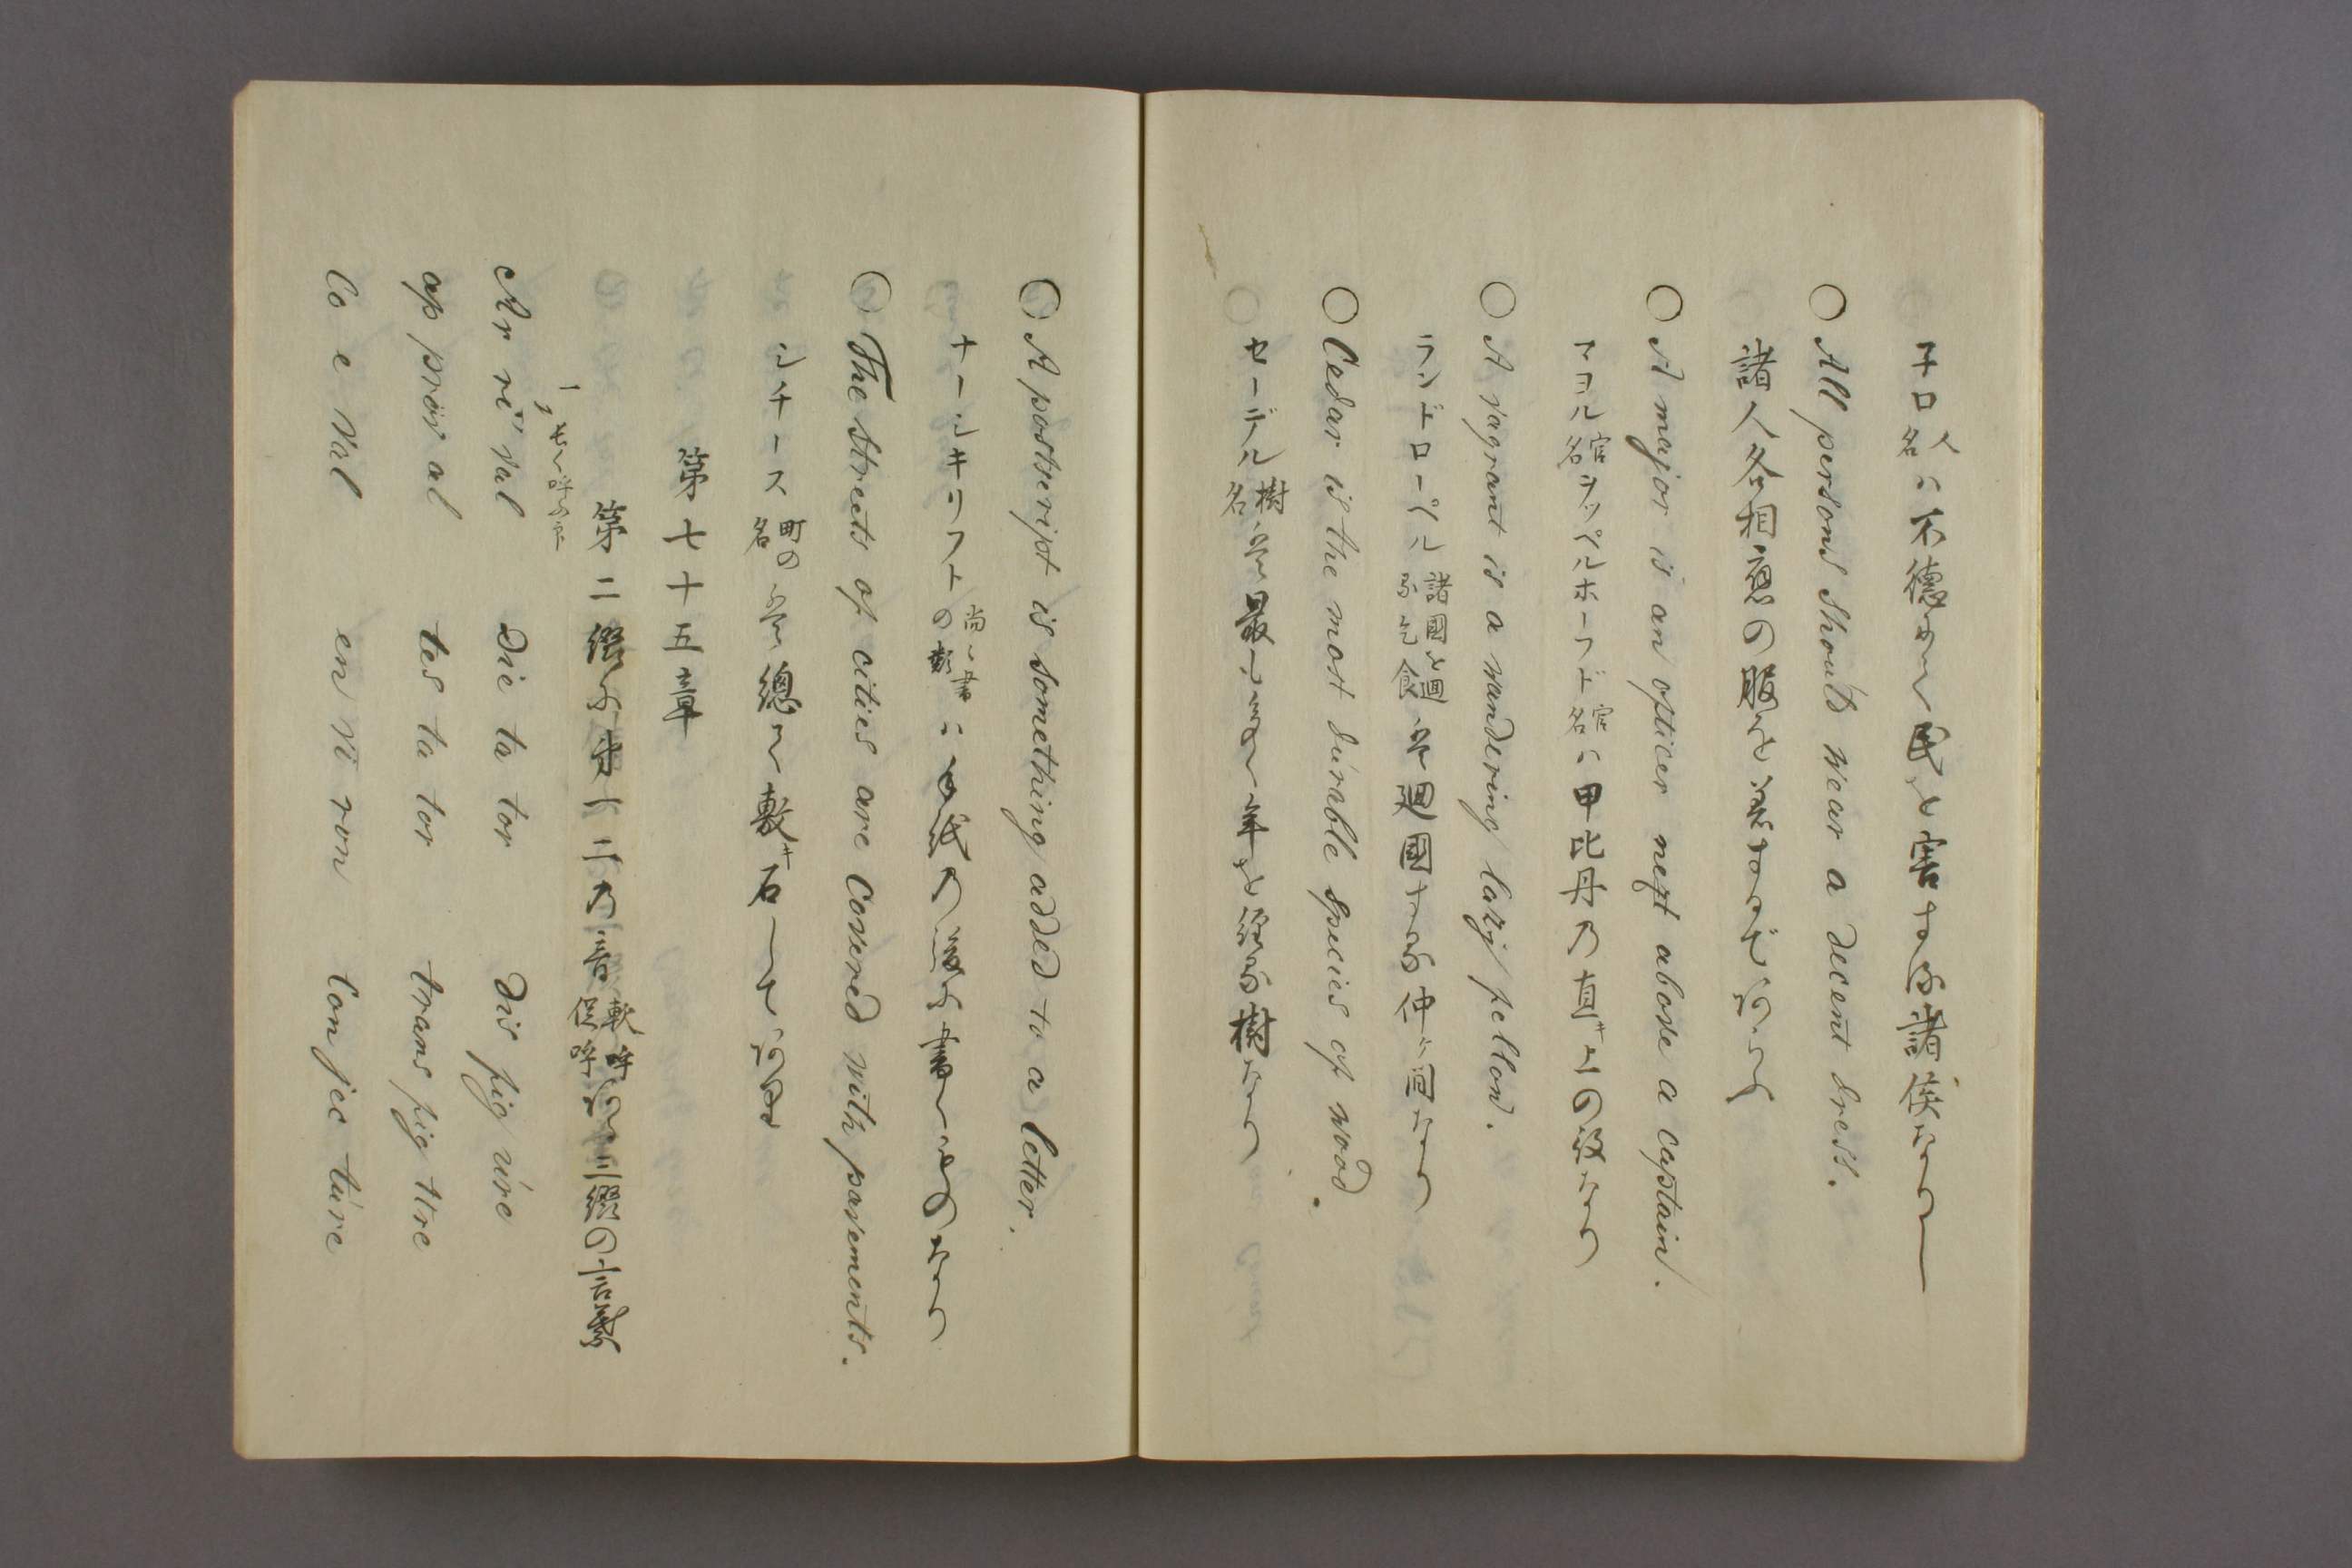 子ロ人名ハ不徳ニして民を害する諸侯なりし
○ All persons should wear a decent dress.
諸人各相應の服を着するで阿らふ
○ A major is an officer next above a captain.
マヨル官名ヲッペルホーフド官名ハ甲比丹乃直キ上の役なり
○ A vagrant is a wandering lazy fellow.
ランドローペル諸國を廻る乞食ハ廻國する仲ヶ間なり
○ Cedar is the most durable species of wood.
セーデル樹名ハ最も年を経る樹なり
○ A postscript is something added to a letter.
ナーシキリフト尚々書の類ハ手紙乃後に書しものなり
○ The streets of cities are Covered with pavements.
シチース町の名ハ總て敷キ石して阿る
第七十五章
第二綴にオ一二乃音軟呼促呼阿る三綴の言葉
Ar rí val dic ta tor dis fig ure
ap prov al tes ta tor trans fig ure
Co e val en vi ron Con jec ture